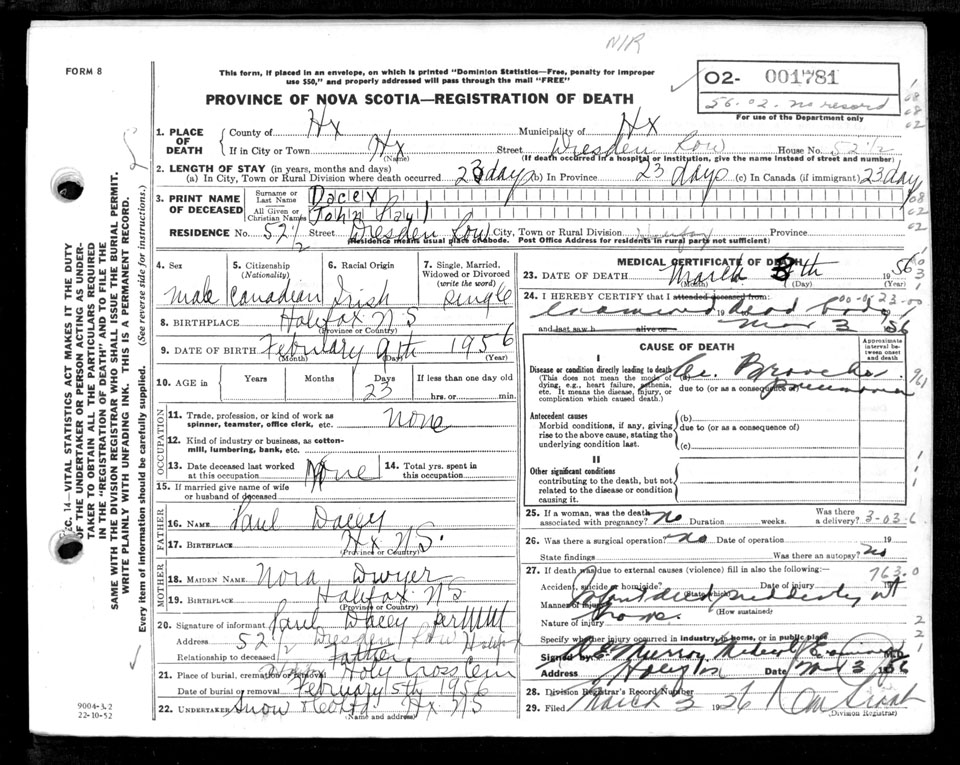 NIR
FORM 8
This form, if placed in an envelope, on which is printed "Dominion Statistics—Free, penalty for improper
use $50," and properly addressed will pass through the mail "FREE"
O2- 001781
56.02. no record
For use of the Department only
PROVINCE OF NOVA SCOTIA—REGISTRATION OF DEATH
1. PLACE OF DEATH { County of Hx Municipality of Hx
If in City or Town Hx (Name) Street Dresden Row House No. 52 1/2
(If death occurred in a hospital or institution, give the name instead of street and number)
2. LENGTH OF STAY (in years, months and days)
(a) In City, Town or Rural Division where death occurred 23 days (b) In Province 23 days (c) In Canada (if immigrant) 23 day
3. PRINT NAME OF DECEASED { Surname or Last Name Dacey
All Given or Christian Names John Paul
RESIDENCE No. 52 1/2 Street Dresden Row City, Town or Rural Division Halifax Province
(Residence means usual place of abode. Post Office Address for residents in rural parts not sufficient)
4. Sex 5. Citizenship (Nationality) 6. Racial Origin 7. Single, Married, Widowed or Divorced (write the word)
Male Canadian Irish single
8. BIRTHPLACE Halifax N S
(Province or Country)
9. DATE OF BIRTH February 9th 1956
(Month) (Day) (Year)
10. AGE in { Years Months Days If less than one day old
23 hrs. or min.
OCCUPATION
11. Trade, profession, or kind of work as spinner, teamster, office clerk, etc. None
12. Kind of industry or business, as cotton-mill, lumbering, bank, etc.
13. Date deceased last worked at this occupation None 14. Total yrs. spent in this occupation
15. If married give name of wife or husband of deceased
FATHER
16. NAME Paul Dacey
17. BIRTHPLACE Hx N S.
(Province or Country)
MOTHER
18. MAIDEN NAME Nora Dwyer
19. BIRTHPLACE Halifax N S
(Province or Country)
20. Signature of informant Paul Dacey per
Address 52 1/2 Dresden Row Halifax
Relationship to deceased Father
21. Place of burial, cremation or removal Holy Cross Cem
Date of burial or removal February 5th 1956
22. UNDERTAKER Snow Hx N S
(Name and address)
9004-3.2
22-10-52
SEC. 14—VITAL STATISTICS ACT MAKES IT THE DUTY
OF THE UNDERTAKER OR PERSON ACTING AS UNDER-
TAKER TO OBTAIN ALL THE PARTICULARS REQUIRED
IN THE "REGISTRATION OF DEATH" AND TO FILE THE
SAME WITH THE DIVISION REGISTRAR WHO SHALL ISSUE THE BURIAL PERMIT.
WRITE PLAINLY WITH UNFADING INK. THIS IS A PERMANENT RECORD.
Every item of information should be carefully supplied. (See reverse side for instructions.)
MEDICAL CERTIFICATE OF DEATH
23. DATE OF DEATH March th 1956
(Month) (Day) (Year)
24. I HEREBY CERTIFY that I attended deceased from:
00-0-23-00
examined dead body
and last saw h alive on Mar 3 1956
CAUSE OF DEATH
Approximate interval between onset and death
I
Disease or condition directly leading to death
(This does not mean the mode of dying, e.g., heart failure, asthenia, etc. It means the disease, injury, or complication which caused death.)
(a) Ac. Broncho
due to (or as a consequence of) Pneumonia
Antecedent causes
Morbid conditions, if any, giving rise to the above cause, stating the underlying condition last.
(b)
due to (or as a consequence of)
(c)
II
Other significant conditions
contributing to the death, but not related to the disease or condition causing it.
25. If a woman, was the death associated with pregnancy? No Duration weeks. Was there a delivery? 3-03.6
26. Was there a surgical operation? No Date of operation 19
State findings Was there an autopsy? No
27. If death was due to external causes (violence) fill in also the following:— 763-0
Accident, suicide or homicide? (State which) Date of injury 19
Manner of injury Infant died suddenly at
(How sustained)
Nature of injury home.
Specify whether injury occurred in industry, in home, or in public place
Signed by Murray Medical Examiner M.D.
Address Date Mar 3 1956
28. Division Registrar's Record Number
29. Filed March 3 1956
(Division Registrar)